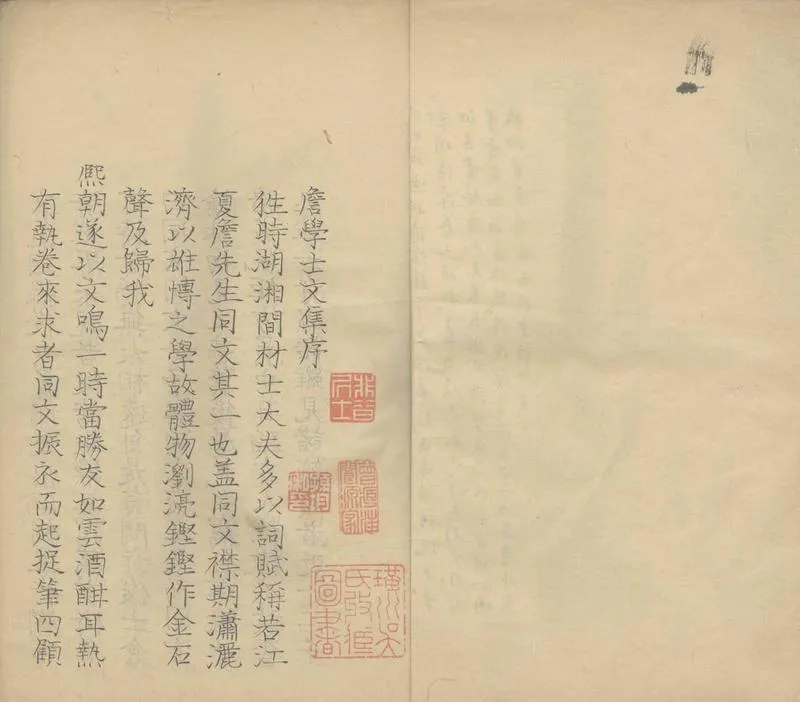 詹學士文集序
徃時湖湘間材士大夫多以詞賦稱若江
夏詹先生同文其一也盖同文襟期瀟灑
濟以雄愽之學故體物瀏亮鏗鏗作金石
聲及歸我
熈朝遂以文鳴一時當勝友如雲酒酣耳熱
有執卷來求者同文振衣而起捉筆四顧
璜川吳
氏收藏
圖書